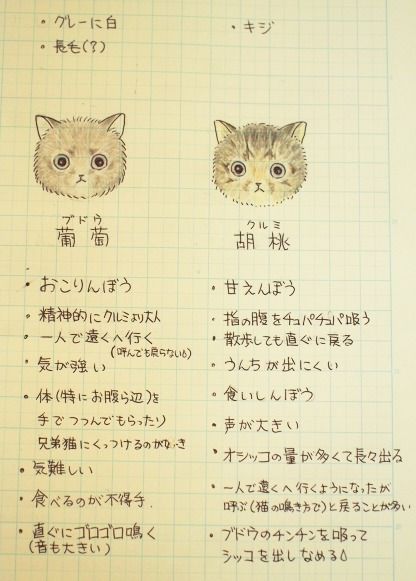 ・グレーに白
・長毛(?)
・キジ
ブドウ
葡萄
クルミ
胡桃
・おこりんぼう
・精神的にクルミより大人
・一人で遠くへ行く
(呼んでも戻らない)
・気が強い
・体(特にお腹ら辺)を
手でつつんでもらったり
兄弟猫にくっつけるのが
・気難しい
・食べるのが不得手.
・直ぐにゴロゴロ鳴く
(音も大きい)
・甘えんぼう
・指の腹をチュパチュパ吸う
・散歩しても直ぐに戻る
・うんちが出にくい
・食いしんぼう
・声が大きい
・オシッコの量が多くて長々出る
・一人で遠くへ行くようになったが
呼ぶ(猫の鳴き方で)と戻ることが多い
・ブドウのチンチンを吸って
シッコを出しなめる